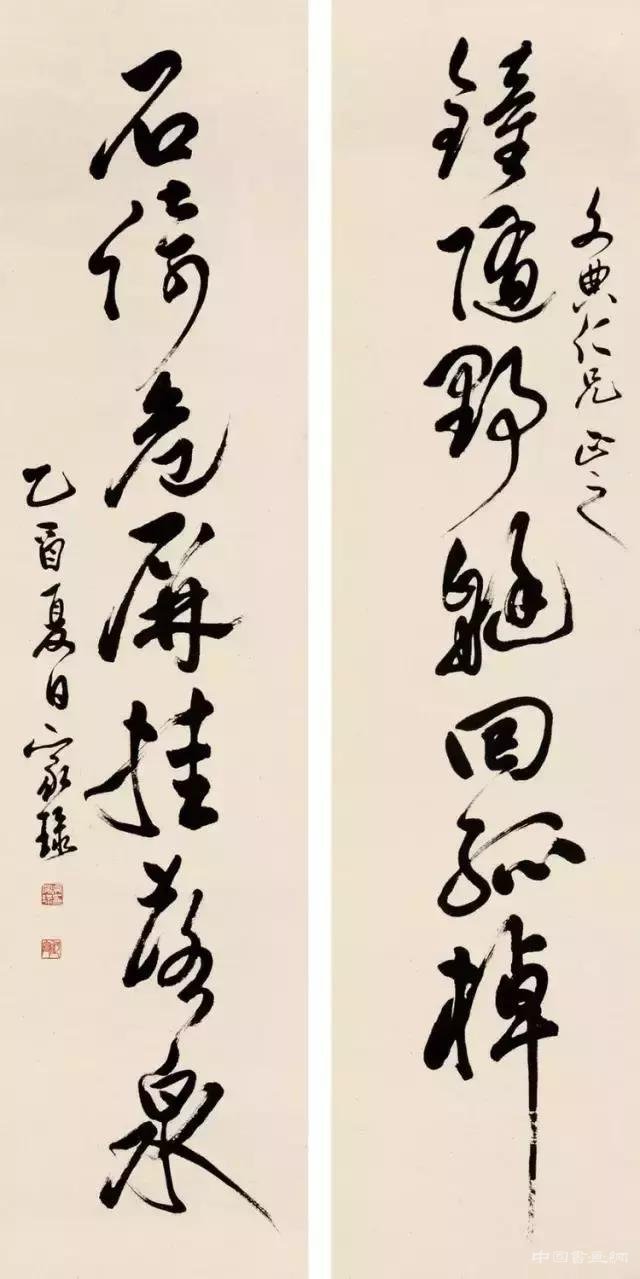 文典仁兄正之
鐘隨野艇回孤棹
石倚危屏挂落泉
乙酉夏日家琭
中国書畫網